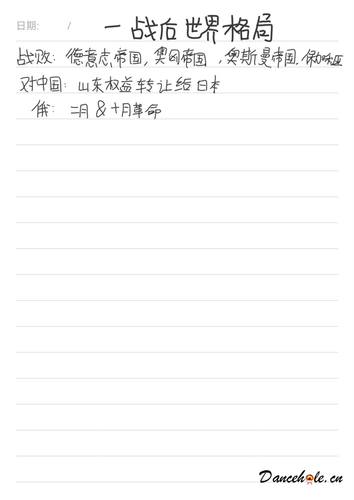 日期: /
一战后世界格局
战败: 德意志帝国, 奥匈帝国, 奥斯曼帝国, 保加利亚
对中国: 山东权益转让给日本
俄: 二月 & 十月革命
Dancehole.cn